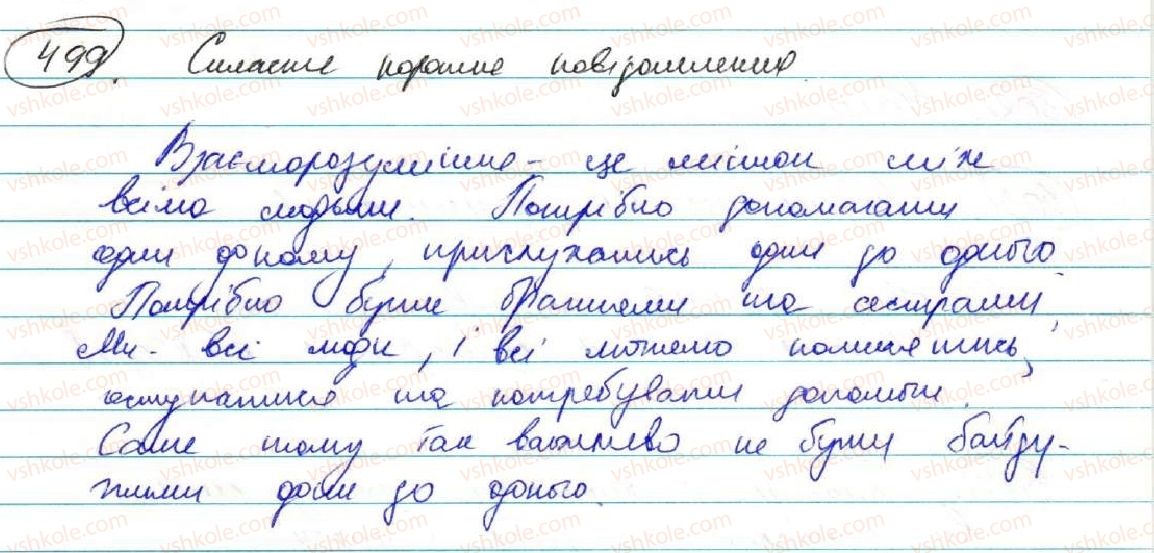 499. Скласти коротке повідомлення.
Взаєморозуміння - це місток між
всіма людьми. Потрібно допомагати
один одному, прислухатись один до одного.
Потрібно бути братами та сестрами,
Ми - всі люди, і всі можемо помилятись,
оступатися та потребувати допомоги.
Саме тому так важливо не бути байду-
жими один до одного.